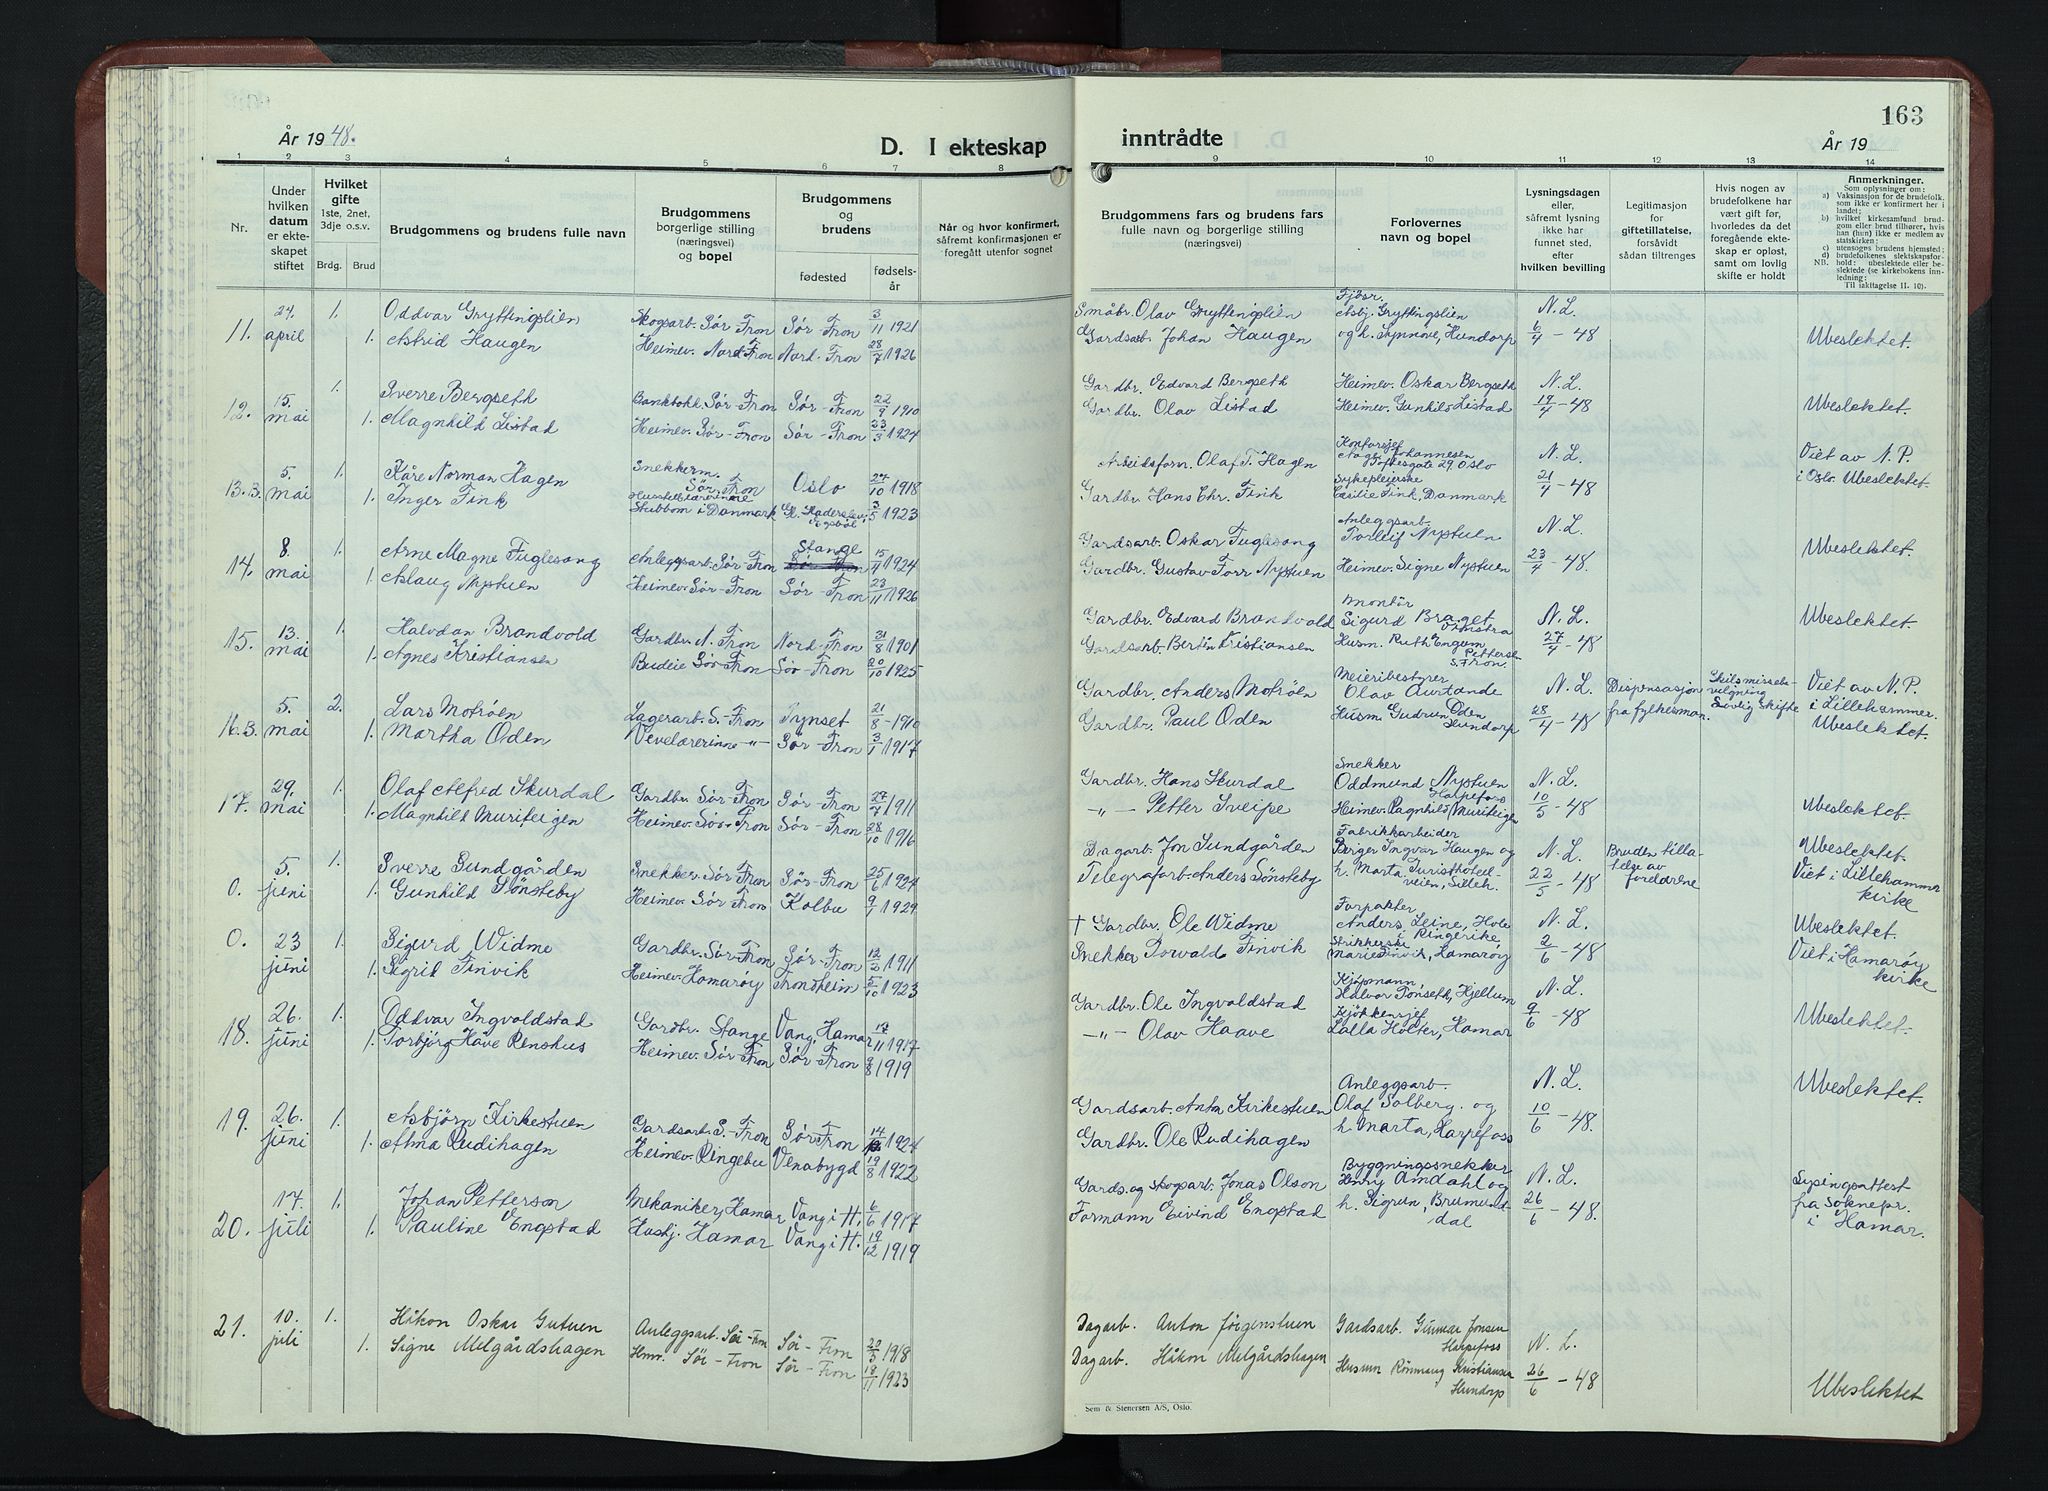 År 1948.
D. I ekteskap
1 2 3 4 5 6 7 8
Nr.
Under hvilken datum er ekteskapet stiftet
Hvilket gifte
1ste, 2net, 3dje o.s.v.
Brdg. Brud
Brudgommens og brudens fulle navn
Brudgommens borgerlige stilling (næringsvei) og bopel
Brudgommens og brudens
fødested
fødselsår
Når og hvor konfirmert, såfremt konfirmasjonen er foregått utenfor sognet
11. 24. april 1. Oddvar Gryttingslien Skogsarb. Sør Fron Sør-Fron 3/11 1921
1. Astrid Haugen Heimev. Nord-Fron Nord-Fron 28/7 1926
12. 15. mai 1. Sverre Bergseth Bankbokh. Sør Fron Sør-Fron 22/9 1910
1. Magnhild Listad Heimev. Sør-Fron Sør-Fron 23/3 1924
13.B. 5. mai 1. Kåre Norman Hagen Snekkerm. Sør Fron Oslo 27/10 1918
1. Inger Fink Husstellærerinne Stubbom i Danmark Gl. Haderslev, Egsbøl 3/5 1923
14. 8. mai 1. Arne Magne Fuglesang Anleggsarb. Sør-Fron Stange 15/4 1924
1. Aslaug Nystuen Heimev. Sør-Fron Sør-Fron 23/11 1926
15. 13. mai 1. Halvdan Brandvold Gardbr. N. Fron Nord-Fron 31/8 1901
1. Agnes Kristiansen Budeie Sør-Fron Sør-Fron 20/10 1925
16.B. 5. mai 2. Lars Motrøen Lagerarb. S.-Fron Tynset 21/8-1910
1. Martha Oden Vevelærerinne -"- Sør-Fron 3/1 1917
17. 29. mai 1. Olaf Alfred Skurdal Gardbr. Sør-Fron Sør-Fron 27/7 1911
1. Magnhild Muriteigen Heimev. Sør-Fron Sør-Fron 28/10 1916
0. 5. juni 1. Sverre Sundgården Snekker Sør-Fron Sør-Fron 25/6 1924
1. Gunhild Sønsteby Heimev. Sør Fron Kolbu 9/1 1924
0. 23 juni 1. Sigurd Widme Gardbr. Sør-Fron Sør-Fron 12/2 1911
1. Sigrid Finvik Heimev. Hamarøy Trondheim 5/10 1923
18. 26. juni 1. Oddvar Ingvoldstad Gardbr. Stange Vang, Hamar 17/11 1917
1. Torbjørg Håve Renshus Heimev. Sør-Fron Sør-Fron 9/8 1919
19. 26. juni 1. Asbjørn Kirkestuen Gardsarb. S.-Fron Sør-Fron 1924
1. Alma Rudihagen Heimev. Ringebu Venabygd 19/8 1922
20. 17. juli 1. Johan Petterson Mekaniker, Hamar Vang i H. 6/6 1917
1. Pauline Engstad Hushj. Hamar Vang i H. 19/12 1919
21. 10. juli 1. Håkon Oskar Gutuen Anleggsarb. Sør-Fron Sør-Fron 20/3 1918
1. Signe Melgårdshagen Hmv. Sør-Fron Sør-Fron 18/11 1923
163
inntrådte
År 19
9 10 11 12 13 14
Brudgommens fars og brudens fars fulle navn og borgerlige stilling (næringsvei)
Forlovernes navn og bopel
Lysningsdagen eller, såfremt lysning ikke har funnet sted, efter hvilken bevilling
Legitimasjon for giftetillatelse, forsåvidt sådan tiltrenges
Hvis nogen av brudefolkene har vært gift før, hvorledes da det foregående ekteskap er opløst, samt om lovlig skifte er holdt
Anmerkninger.
Som oplysninger om:
a) Vaksinasjon for de brudefolk. som ikke er konfirmert her i landet;
b) hvilket kirkesamfund brudgom eller brud tilhører, hvis han (hun) ikke er medlem av statskirken;
c) utensogns brudens hjemsted;
d) brudefolkenes slektskapsforhold: ubeslektede eller beslektede (se kirkebokens innledning:
NB. Til iakttagelse II. 10).
Småbr. Olav Gryttingslien Fjøsr. Asbj. Gryttingslien N. L.
Gardsarb. Johan Haugen og h. Synnøve, Hundorp 6/4-48 Ubeslektet.
Gardbr. Edvard Bergseth Heimev. Oskar Bergseth N. L.
Gardbr. Olav Listad Heimev. Gunhild Listad 19/4-48 Ubeslektet.
Arbeidsform. Olaf T. Hagen Kontorsjef Aage Johannesen Toftesgate 29, Oslo N. L. Viet av N. P.
Gardbr. Hans Chr. Fink Sykepleierske Cecilie Fink, Danmark 21/4-48 i Oslo. Ubeslektet.
Gardsarb. Oskar Fuglesang Anleggsarb. Torleif Nystuen N. L.
Gardbr. Gustav Torr Nystuen Heimev. Signe Nystuen 23/4-48. Ubeslektet.
Gardbr. Edvard Brandvold Montør Sigurd Braget Vinstra N. L. Ubeslektet.
Gardsarb. Bertin Kristiansen Husm. Ruth Engum Pettersen S. Fron. 27/4-48
Gardbr. Anders Motrøen Meieribestyrer Olav Aurtande N. L. Dispensasjon Skilsmissebevilgning Viet av N. P.
Gardbr. Paul Oden Husm. Gudrun Oden Hundorp 28/4-48 fra fylkesman. Lovlig skifte i Lillehammer. Ubeslektet.
Gardbr. Hans Skurdal Snekker Oddmund Nystuen Harpefoss N. L.
-"- Petter Sveipe Heimev. Ragnhild Muriteigen 10/5-48 Ubeslektet.
Dagarb. Jon Sundgården Fabrikkarbeider Birger Ingvar Haugen og N. L. Bruden tillatelse av foreldrene Ubeslektet.
Telegrafarb. Anders Sønsteby h. Marta, Turisthotellveien, Lilleh. 22/5-48 Viet i Lillehammer kirke
† Gardbr. Ole Widme Forpakter Anders Leine, Hole i Ringerike, N. L. Ubeslektet.
Snekker Torvald Finvik Marie Finvik, Hamarøy 2/6-48 Viet i Hamarøy kirke
Gardbr. Ole Ingvoldstad Kjøpmann, Halvor Tønseth, Hjellum N. L.
-"- Olav Haave Kjøkkensjef Lalla Holter, Hamar 9/6-48 Ubeslektet.
Gardsarb. Anton Kirkestuen Anleggsarb. Olaf Solberg. og N. L. Ubeslektet.
Gardbr. Ole Rudihagen h. Marta, Harpefoss 10/6-48.
Gards. og skogsarb. Jonas Olson Byggningssnekker Henry Amdahl og N. L. Lysingsattest fra soknepr. i Hamar.
Formann Eivind Engstad h. Sigrun, Brumunddal 26/6-48.
Dagarb. Anton Jørgenstuen Gardsarb. Gunnar Jonsen Harpefoss N. L.
Dagarb. Håkon Melgårdshagen Husm Rønnaug Kristiansen Hundorp 26/6-48 Ubeslektet
Sem & Stenersen A/S, Oslo.